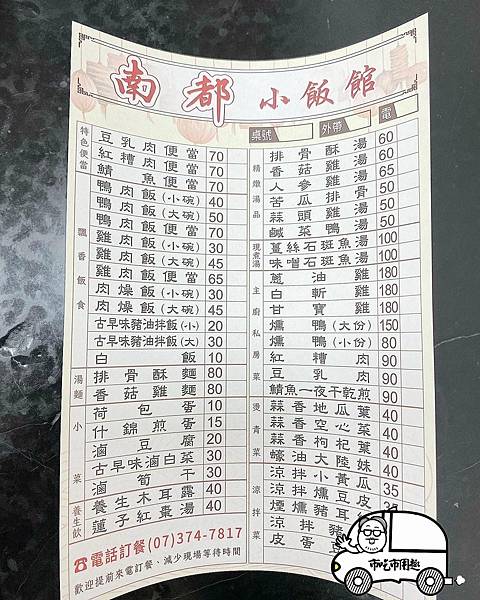 南都小飯館
桌號 外帶 電
特色便當
豆乳肉便當 70
紅糟肉便當 70
鯖魚便當 70
飄香飯食
鴨肉飯(小碗) 40
鴨肉飯(大碗) 50
鴨肉飯便當 70
雞肉飯(小碗) 30
雞肉飯(大碗) 45
雞肉飯便當 65
肉燥飯(小碗) 30
肉燥飯(大碗) 45
古早味豬油拌飯(小) 20
古早味豬油拌飯(大) 30
白飯 10
湯麵
排骨酥麵 80
香菇雞麵 80
小菜
荷包蛋 10
什錦煎蛋 15
滷豆腐 20
古早味滷白菜 30
滷筍干 30
養生飲
養生木耳露 40
蓮子紅棗湯 40
☎電話訂餐(07)374-7817
歡迎提前來電訂餐、減少現場等待時間
精燉湯品
排骨酥湯 60
香菇雞湯 60
人參雞湯 65
苦瓜排骨 50
蒜頭雞湯 50
鹹菜鴨湯 50
現煮湯
薑絲石斑魚湯 100
味噌石斑魚湯 100
主廚私房菜
蔥油雞 180
白斬雞 180
甘寶雞 180
燻鴨(大份) 150
燻鴨(小份) 80
紅糟肉 90
豆乳肉 90
鯖魚一夜干乾煎 90
燙青菜
蒜香地瓜葉 40
蒜香空心菜 40
蒜香枸杞葉 40
蠔油大陸妹 40
涼拌菜
涼拌小黃瓜 35
涼拌燻豆皮 35
煙燻豬耳
涼拌豬
皮蛋豆
市吃市用趣